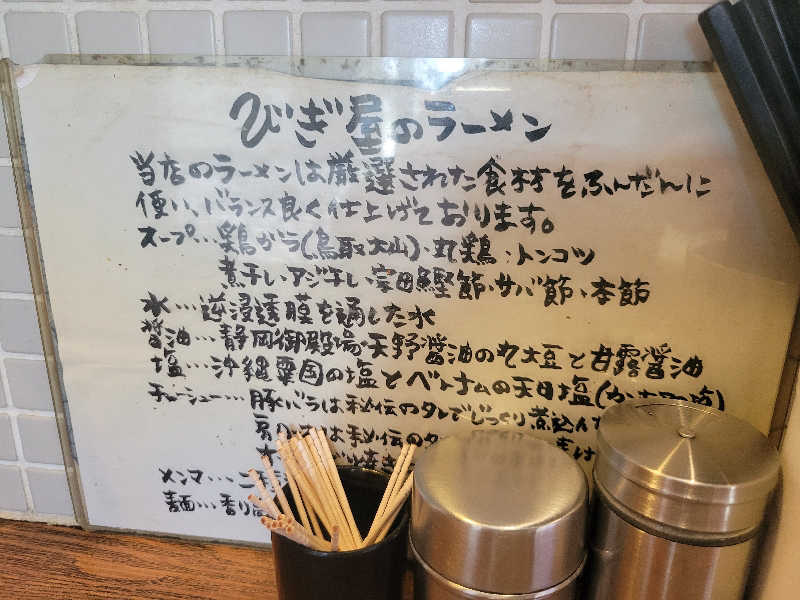 びぎ屋のラーメン
当店のラーメンは厳選された食材をふんだんに
使い、バランス良く仕上げております。
スープ…鶏ガラ(鳥取大山)・丸鶏・トンコツ
煮干し・アジ干し・宗田鰹節・サバ節・本節
水…逆浸透膜を通した水
醤油…静岡御殿場・天野醤油の丸大豆と甘露醤油
塩…沖縄粟国の塩とベトナムの天日塩(カンホアの塩)
チャーシュー…豚バラは秘伝のタレでじっくり煮込んだ
は秘伝のタ
メンマ…
麺…香り